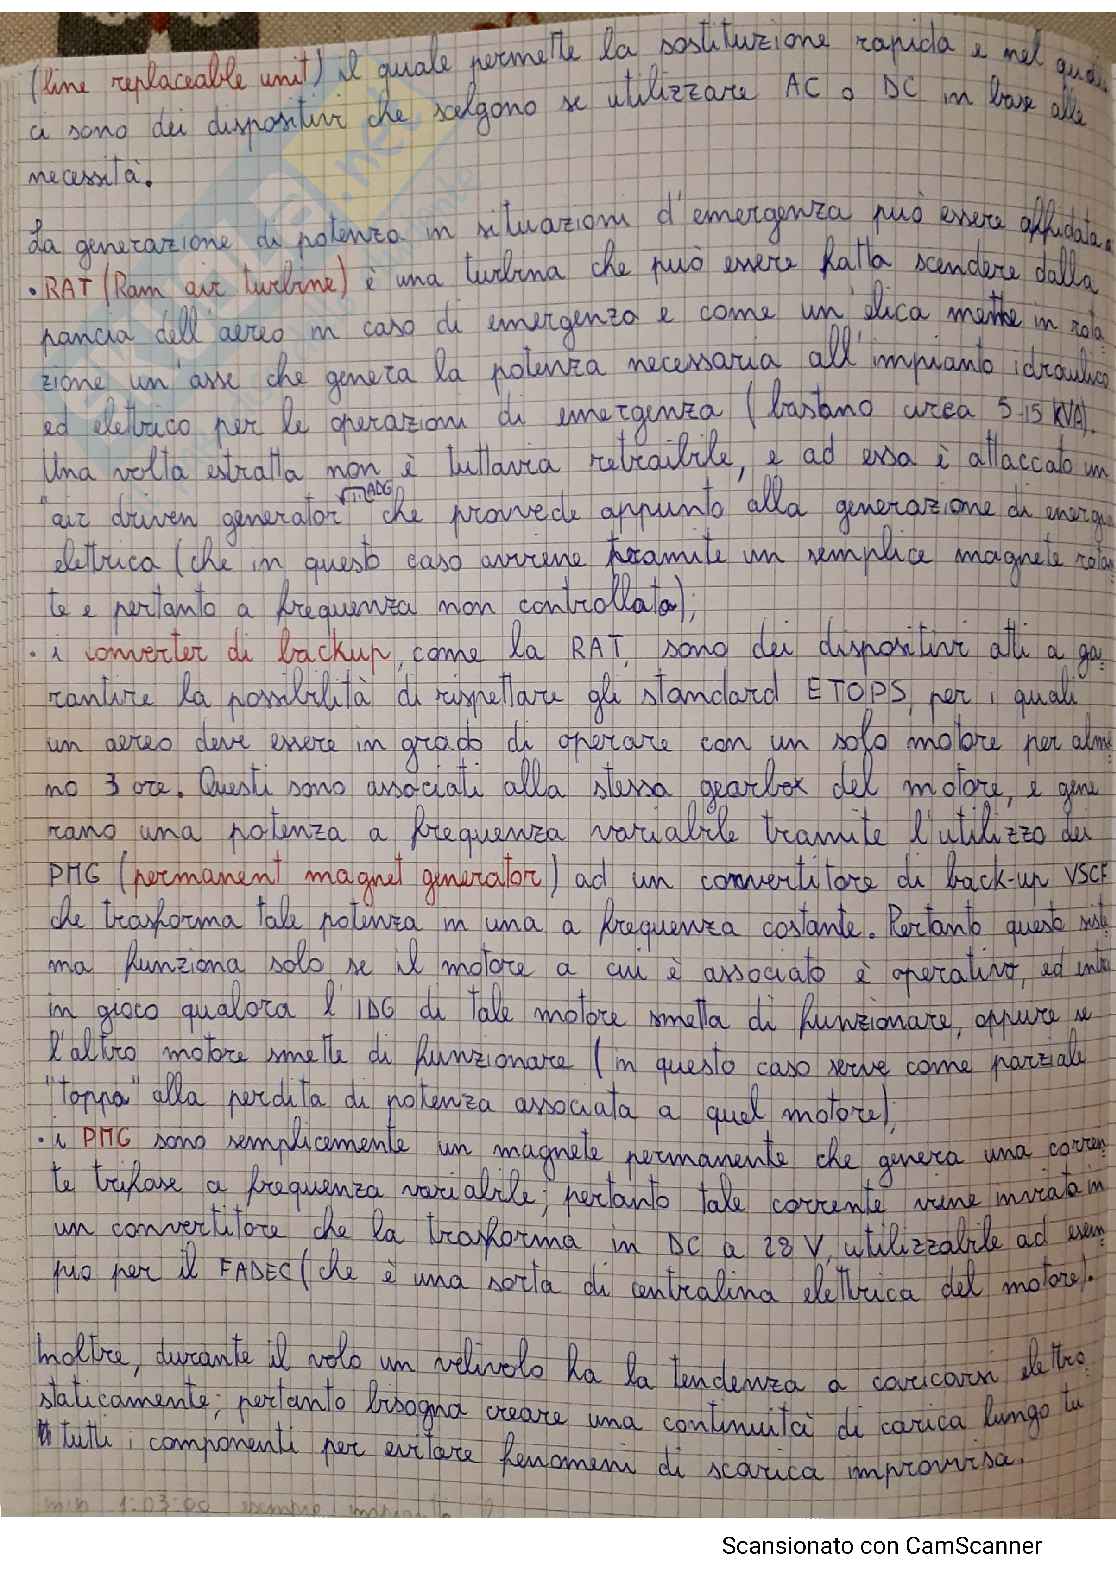 (line replaceable unit) il quale permette la sostituzione rapida e nel quale
ci sono dei dispositivi che scelgono se utilizzare AC o DC in base alle
necessità.
La generazione di potenza in situazioni d'emergenza può essere affidata a
• RAT (Ram air turbine) è una turbina che può essere fatta scendere dalla
pancia dell'aereo in caso di emergenza e come un'elica mette in rota
zione un'asse che genera la potenza necessaria all'impianto idraulico
ed elettrico per le operazioni di emergenza (bastano circa 5-15 KVA).
Una volta estratta non è tuttavia retraibile, e ad essa è attaccato un
"air driven generator" ADG che provvede appunto alla generazione di energia
elettrica (che in questo caso avviene tramite un semplice magnete rotan
te e pertanto a frequenza non controllata);
• i converter di backup, come la RAT, sono dei dispositivi atti a ga-
rantire la possibilità di rispettare gli standard ETOPS, per i quali
un aereo deve essere in grado di operare con un solo motore per alme-
no 3 ore. Questi sono associati alla stessa gearbox del motore, e gene
rano una potenza a frequenza variabile tramite l'utilizzo dei
PMG (permanent magnet generator) ad un convertitore di back-up VSCF
che trasforma tale potenza in una a frequenza costante. Pertanto questo siste
ma funziona solo se il motore a cui è associato è operativo, ed entra
in gioco qualora l'IDG di tale motore smetta di funzionare, oppure se
l'altro motore smette di funzionare (in questo caso serve come parziale
"toppa" alla perdita di potenza associata a quel motore);
• i PMG sono semplicemente un magnete permanente che genera una corren
te trifase a frequenza variabile; pertanto tale corrente viene inviata in
un convertitore che la trasforma in DC a 28 V, utilizzabile ad esem
pio per il FADEC (che è una sorta di centralina elettrica del motore).
Inoltre, durante il volo un velivolo ha la tendenza a caricarsi elettro
staticamente; pertanto bisogna creare una continuità di carica lungo tu
tutti i componenti per evitare fenomeni di scarica improvvisa.
min 1:03:00 esempio
Scansionato con CamScanner